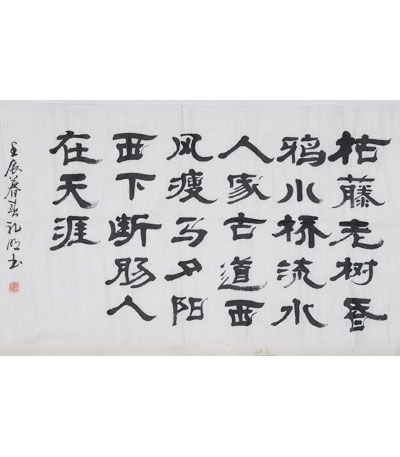 枯藤老树昏
鸦小桥流水
人家古道西
风瘦马夕阳
西下断肠人
在天涯
壬辰暮春书